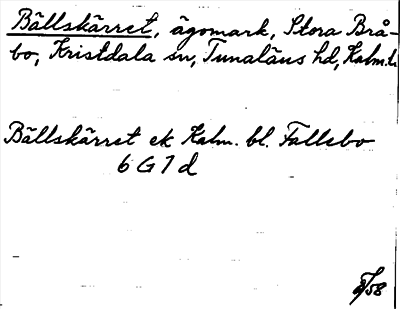 Bällskärret, ägomark, Stora Brå-
bo, Kristdala sn, Tunaläns hd, Kalm.l.
Bällskärret ek Kalm. bl. Fallebo
6 G 7 d
/58